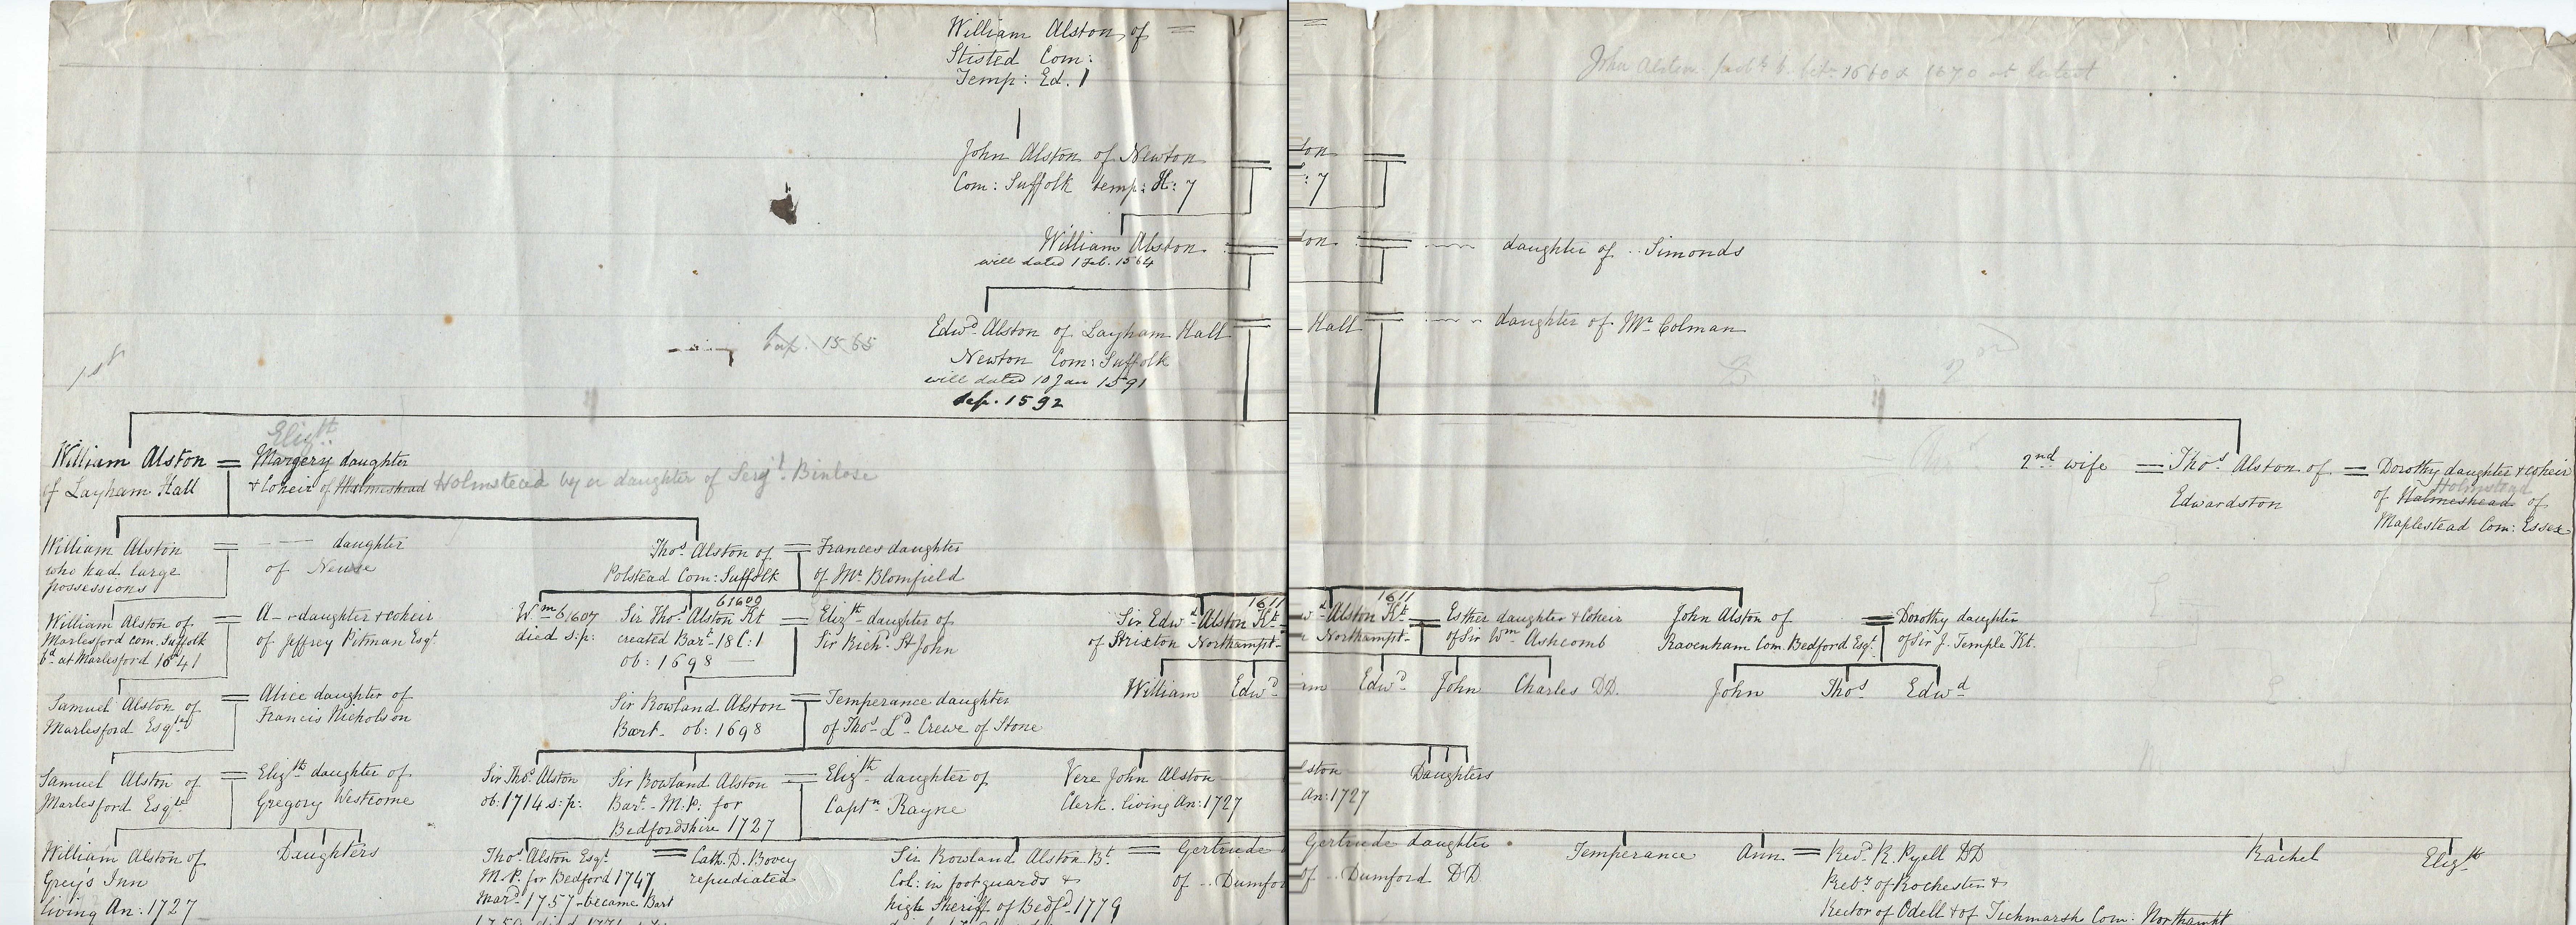 William Alston of =
Stisted Com:
Temp: Ed. 1
John Alston prob b. betn 1660 & 1670 at latest
John Alston of Newton
Com: Suffolk temp: H: 7
ton
: 7
William Alston
will dated 1 Feb. 1564
ton
daughter of .. Simonds
Edwd. Alston of Layham Hall
Newton Com: Suffolk
will dated 10 Jan 1591
1592
Hall
daughter of Mr Colman
1565
1st
2nd
Elizth
William Alston = Margery daughter
of Layham Hall
& Coheir of Halmeshead Holmstead by a daughter of Serjt. Binlose
2nd wife = Thos. Alston of = Dorothy daughter & coheir
Edwardston
Holmstead
of Halmeshead of
Maplestead Com: Essex
William Alston =
who had large
possessions
daughter
of Newse
Thos. Alston of = Frances daughter
Polstead Com: Suffolk
of Mr. Blomfield
William Alston of =
Marlesford Com. Suffolk
bd. at Marlesford 1641
A-- daughter & coheir
of Jeffrey Pitman Esqt
Wm b 1607
died s:p:
b1609
Sir Thos. Alston Kt =
created Bart. 18 C: 1
ob: 1698 —
Elizth daughter of
Sir Richd. St John
1611
Sir Edwd Alston Kt.
of Strixton Northampt-
1611
d Alston Kt. =
Northampt-
Esther daughter & Coheir
of Sir Wm Ashcomb
John Alston of =
Ravenham Com. Bedford Esqt.
Dorothy daughter
of Sir J. Temple Kt.
William Edwd
Edwd. John Charles DD.
John Thos Edwd
Samuel Alston of =
Marlesford Esqt
Alice daughter of
Francis Nicholson
Sir Rowland Alston =
Bart- ob: 1698
Temperance daughter
of Thos. Ld. Crewe of Stone
Samuel Alston of =
Marlesford Esqt
Elizth daughter of
Gregory Westcome
Sir Thos. Alston
ob: 1714 s:p:
Sir Rowland Alston =
Bart. - M:P: for
Bedfordshire 1727
Elizth daughter of
Captn Rayne
Vere John Alston
Clerk. living An: 1727
lston
An: 1727
Daughters
William Alston of
Grey's Inn
living An: 1727
Daughters
Thos. Alston Esqt. =
M.P. for Bedford 1747
Mard. 1757 - became Bart
Cath. D. Bovey
repudiated
Sir Rowland Alston Bt. =
Col: in foot guards &
high Sheriff of Bedfd. 1779
Gertrude
of .. Dumfo
Gertrude daughter
of .. Dumford DD.
Temperance
Ann = Revd. R. Pyell DD
Preby of Rochester &
Rector of Odell & of Tichmarsh Com: Northampt
Rachel
Elizth